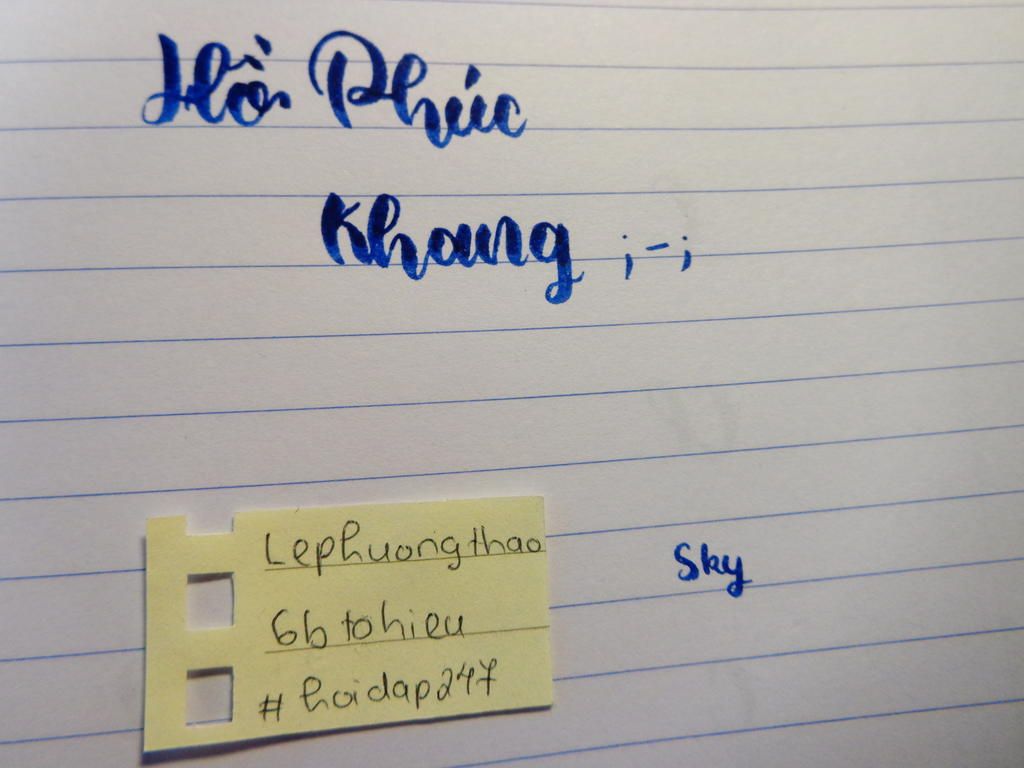 Hồ Phúc
Khang ;-;
Lephuongthao
6b tohieu
#hoidap247
Sky